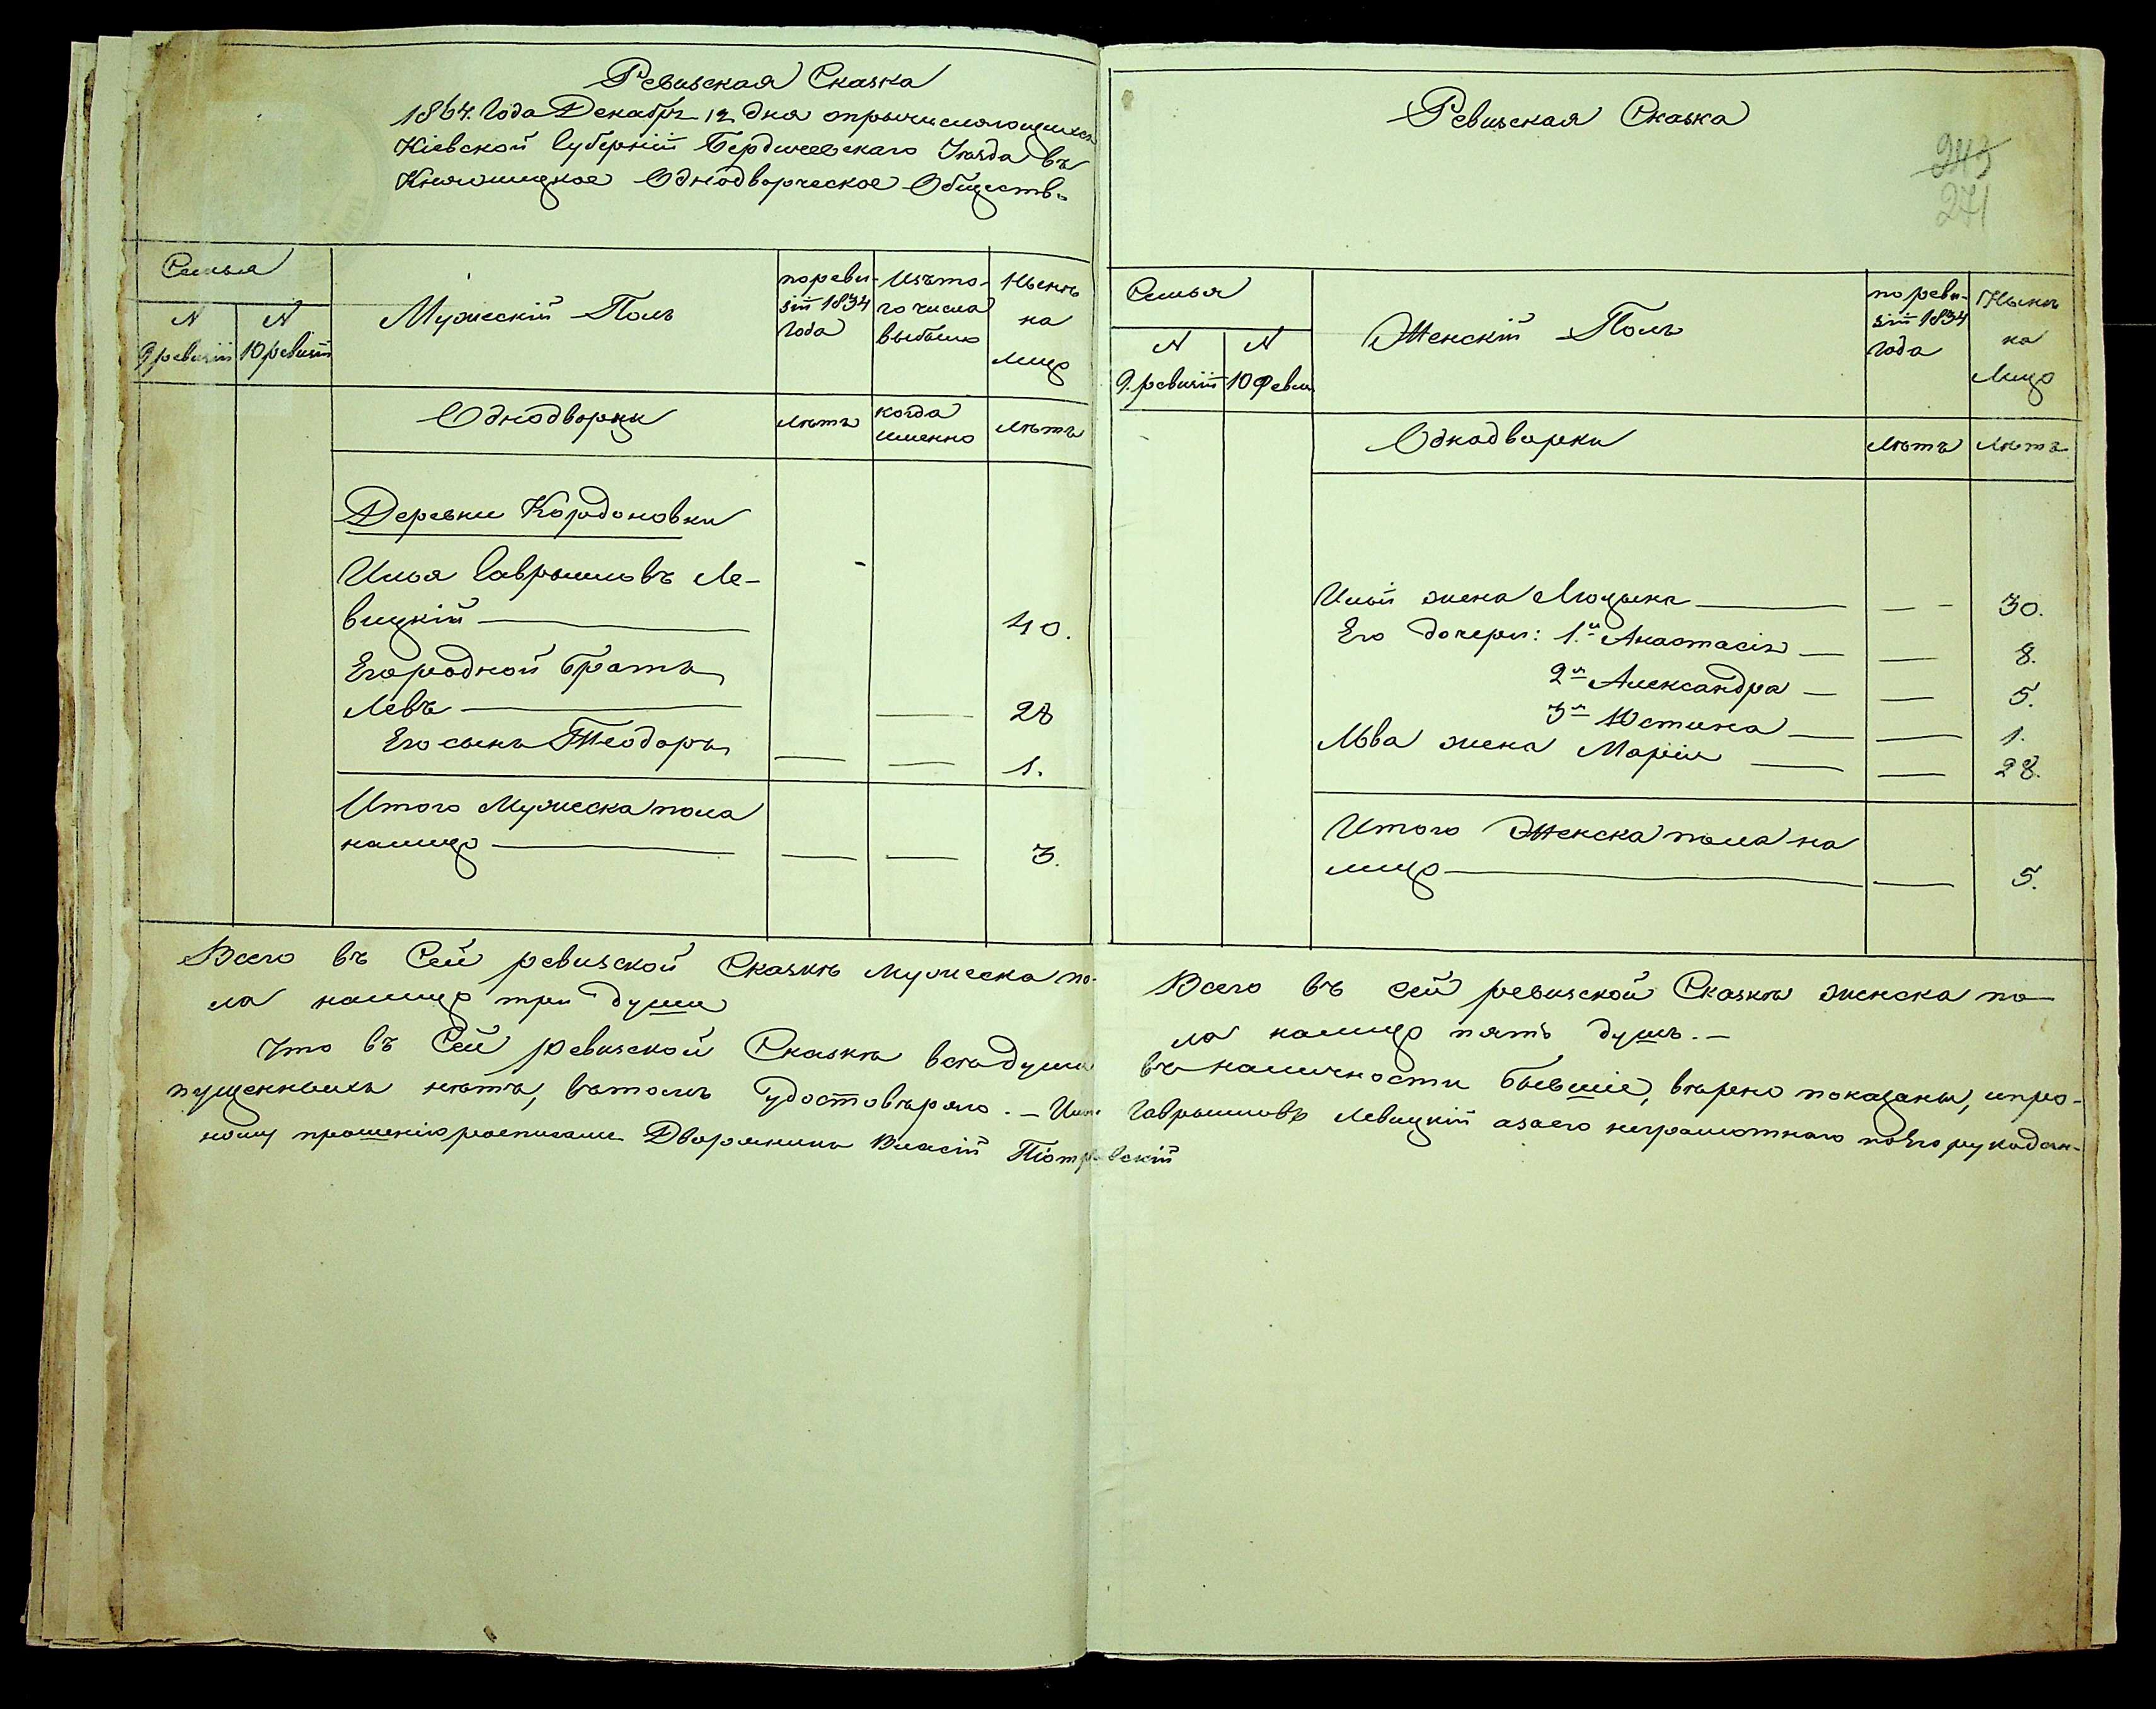 Ревизская Сказка
1864. Года Декабря 12 дня опричисляющихся
Кіевской Губерніи Бердичевскаго Уѣзда въ
Одноdворческое Общество
Семья
N
9 ревизіи
N
10 ревизіи
Мужескій Полъ
по реви-
зіи 1834
Года
Изъ то-
го числа
выбыло
Нынѣ
на
лицо
Однодворцы
лѣтъ
когда
именно
лѣтъ
Деревни Кордоновки
Илья Гаврииловъ Ле-
вицкій 40.
Его родной братъ
Левъ 28
Его сынъ Теодоръ 1.
Итого Мужеска пола
налицо 3.
Всего въ Сей ревизской Сказкѣ мужеска по-
ла налицо три души
Ревизская Сказка
243
271
Семья
N
9. ревизіи
N
10 Реви
Женскій Полъ
по реви-
зіи 1834
Года
Нынѣ
на
Лицо
Однадворки
лѣтъ
лѣтъ
Ильи жена 30.
Его дочери: 1.я Анастасія 8.
2я Александра 5.
3я Юстина 1.
Льва жена Марія 28.
Итого Женска пола на
лицо 5.
Всего въ сей ревизской Сказкѣ женска по-
ла налицо пять душъ. -
Что въ Сей ревизской Сказкѣ всѣ души въ наличности бывшіе, вѣрно показаны, ипро-
пущенныхъ нѣтъ, вътомъ удостовѣряю. - Илья Гаврииловъ Левицкій азаего неграмотнаго поего рукодан-
ному прошенію росписался Дворянинъ Власій Піотровскій